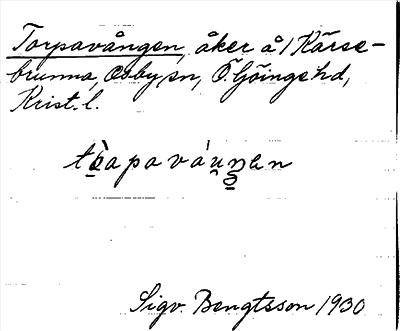 Torpavången, åker å 1 Kärse-
brunna, Osby sn, Ö. Göinge hd,
Krist. l.
Sigv. Bengtsson 1930